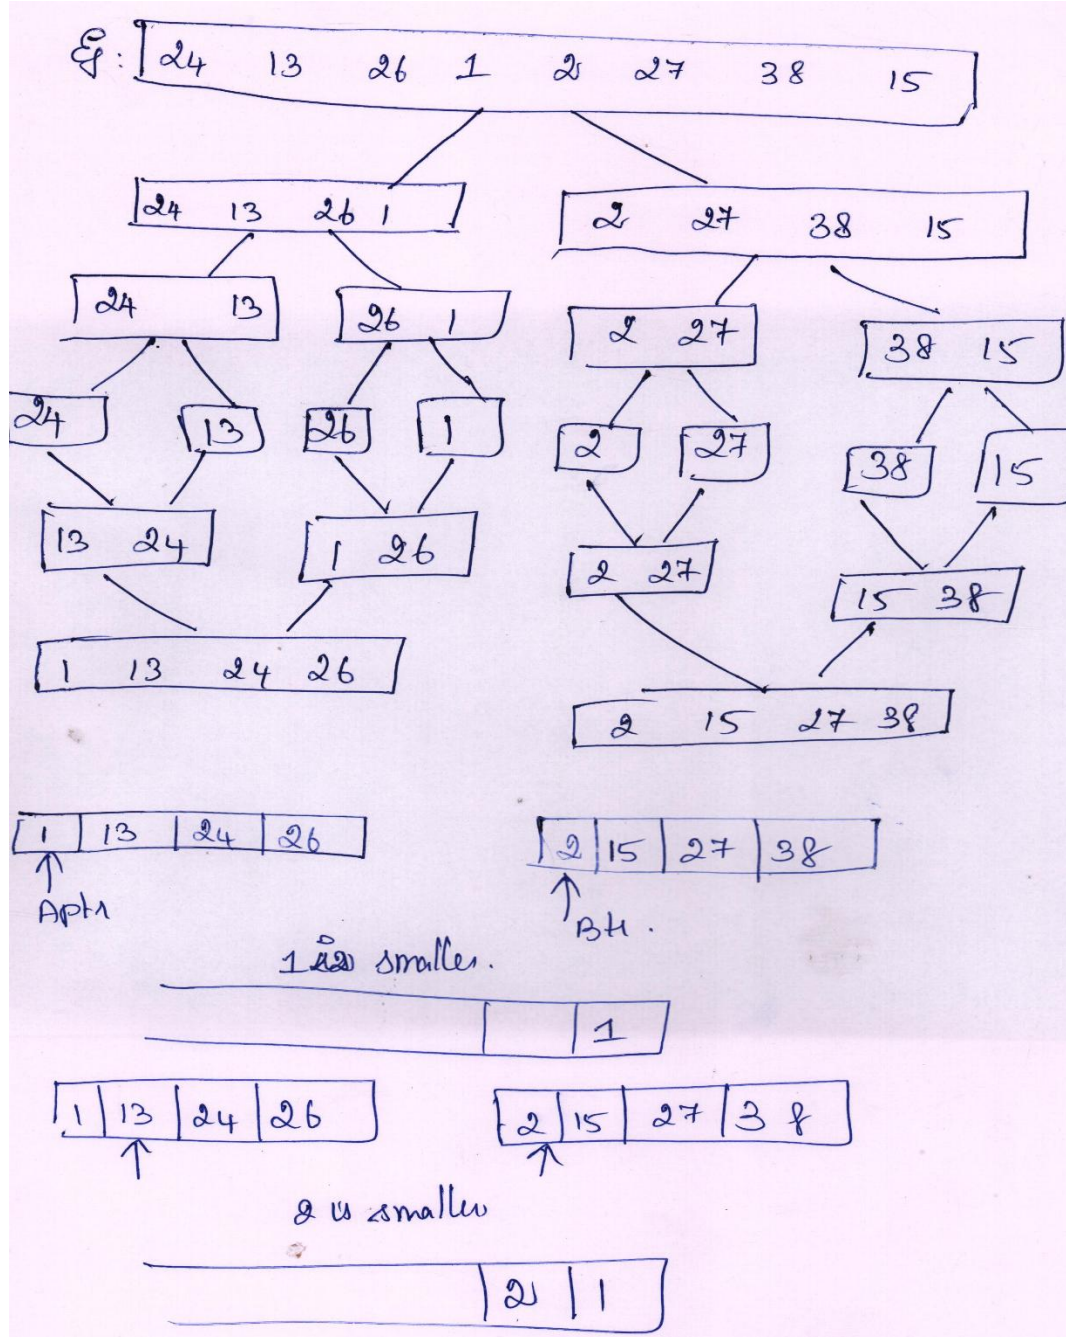 Eg: 24 13 26 1 2 27 38 15
24 13 26 1 2 27 38 15
24 13 26 1 2 27 38 15
24 13 26 1 2 27 38 15
13 24 1 26 2 27 15 38
1 13 24 26 2 15 27 38
1 13 24 26 2 15 27 38
Aptr
1 is smaller.
1
1 13 24 26 2 15 27 38
2 is smaller
2 1